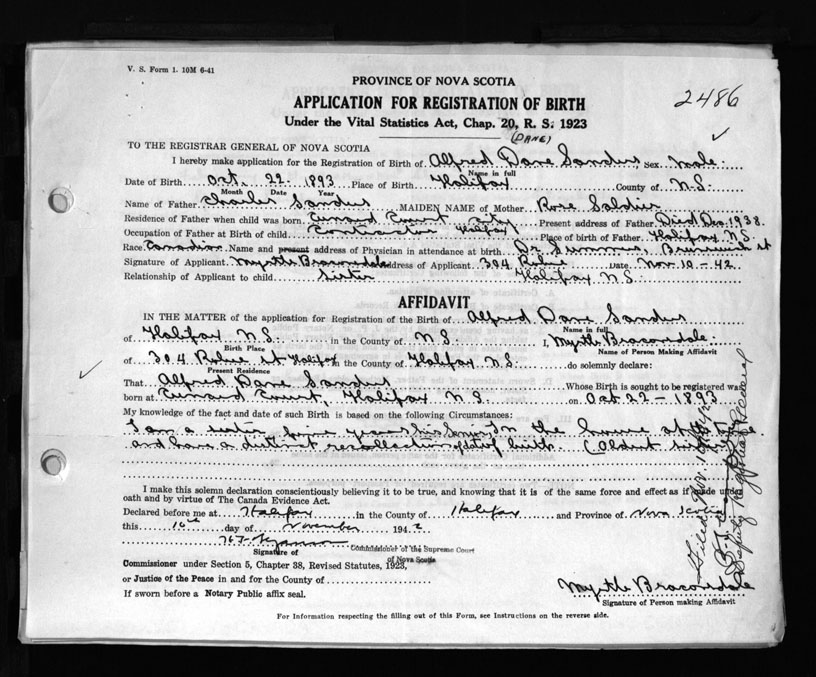 V. S. Form 1. 10M 6-41
PROVINCE OF NOVA SCOTIA
2486
APPLICATION FOR REGISTRATION OF BIRTH
Under the Vital Statistics Act, Chap. 20, R. S. 1923
(DANE)
TO THE REGISTRAR GENERAL OF NOVA SCOTIA
I hereby make application for the Registration of Birth of Alfred Dane Sanders Sex male
Name in full
Date of Birth Oct. 22. 1893 Place of Birth Halifax County of N.S.
Month Date Year
Name of Father Charles Sanders MAIDEN NAME of Mother Rose
Residence of Father when child was born Cunard Court City Present address of Father Died Dec 1938
Occupation of Father at Birth of child Contractor Halifax Place of birth of Father Halifax N.S.
Race Canadian Name and present address of Physician in attendance at birth Dr. Brunswick st
Signature of Applicant Myrtle Address of Applicant 304 Date Nov. 10-42
Relationship of Applicant to child sister Halifax N.S.
AFFIDAVIT
IN THE MATTER of the application for Registration of the Birth of Alfred Dane Sanders
Name in full
of Halifax N.S. in the County of N.S. I, Myrtle
Birth Place Name of Person Making Affidavit
of 304 st Halifax in the County of Halifax N.S. do solemnly declare:
Present Residence
That Alfred Dane Sanders Whose Birth is sought to be registered was
born at Cunard Court, Halifax N.S. on Oct 22-1893
My knowledge of the fact and date of such Birth is based on the following Circumstances:
I am a sister years his Senior In the house at
and have a distinct recollection of date of birth. (Oldest
I make this solemn declaration conscientiously believing it to be true, and knowing that it is of the same force and effect as if made under
oath and by virtue of The Canada Evidence Act.
Declared before me at Halifax in the County of Halifax and Province of Nova Scotia
this 10th day of November 1942
Signature of
Commissioner of the Supreme Court
of Nova Scotia
Commissioner under Section 5, Chapter 38, Revised Statutes, 1923,
or Justice of the Peace in and for the County of
If sworn before a Notary Public affix seal.
Myrtle
Signature of Person making Affidavit
For Information respecting the filling out of this Form, see Instructions on the reverse side.
Filed
Deputy Registrar General